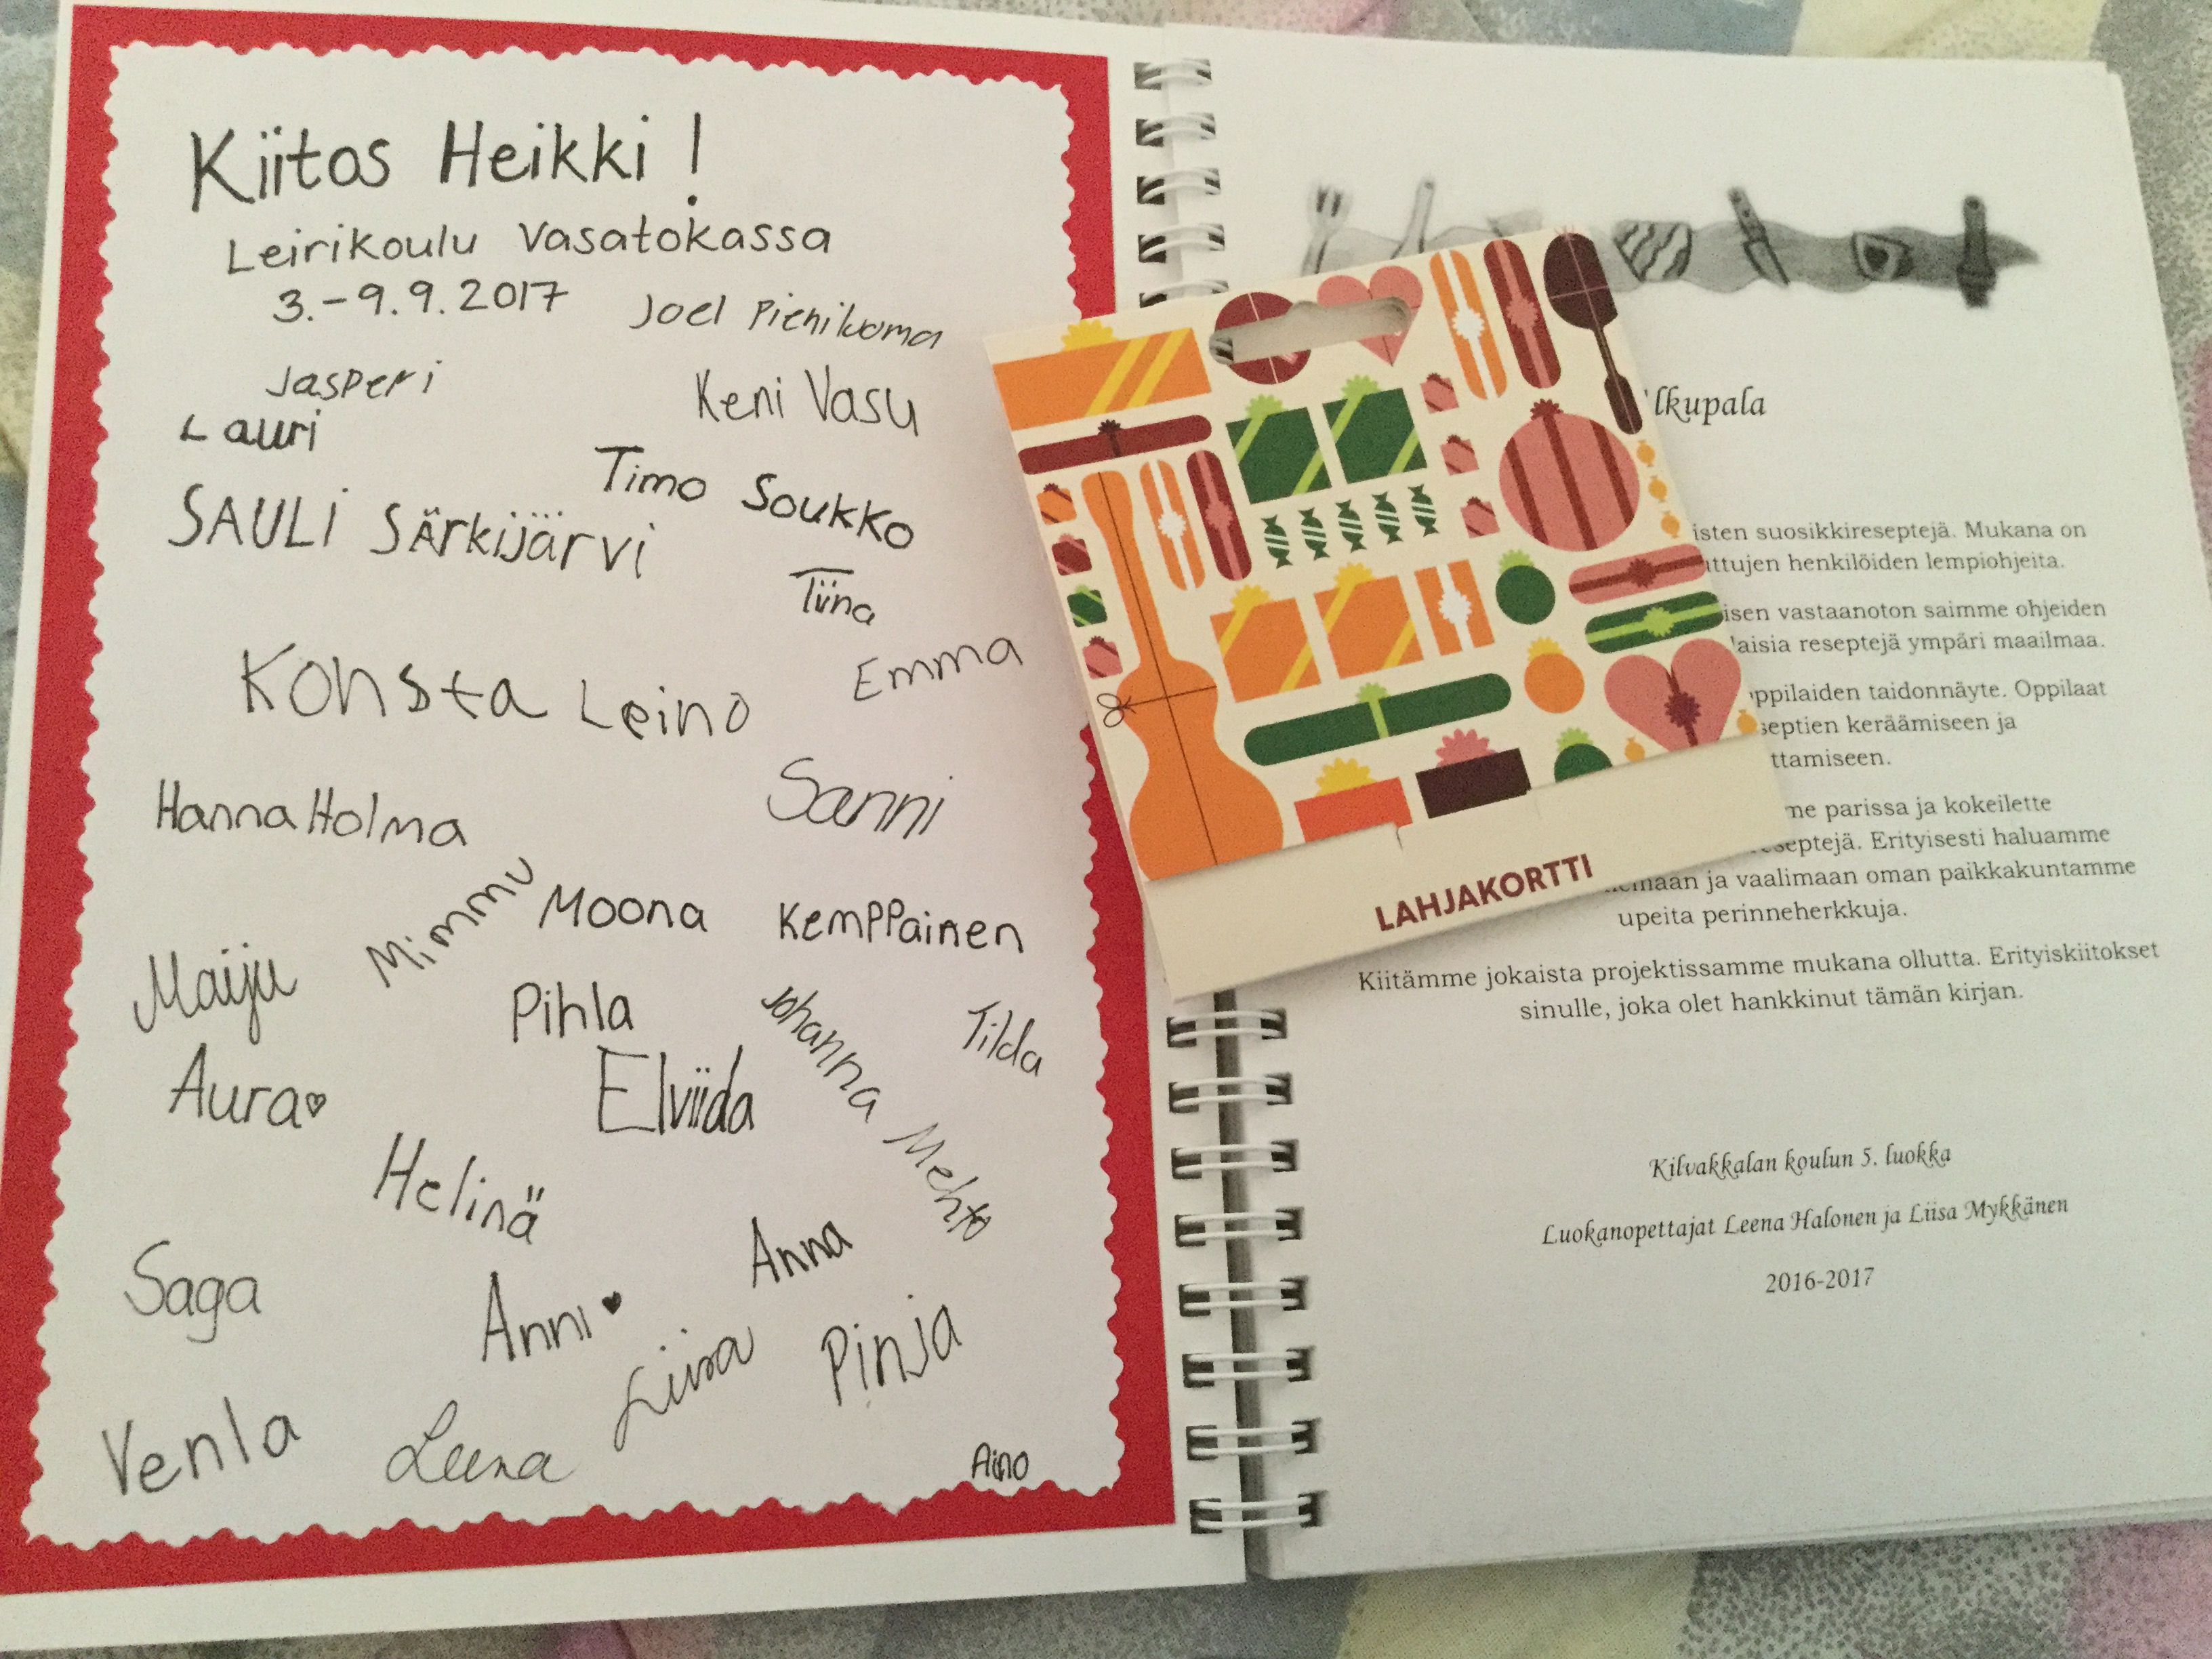 Kiitos Heikki !
Leirikoulu Vasatokassa
3.-9.9.2017
Joel Pieniluoma
Jasperi
Keni Vasu
Lauri
Timo Soukko
SAULI SÄrkijärvi
Tiina
Emma
Konsta Leino
Sanni
Hanna Holma
Mimmu
Moona Kemppainen
Maiju
Pihla
Johanna Mehto
Tilda
Aura
Elviida
Helinä
Anna
Saga
Anni
Liisa
Pinja
Venla
Leena
Aino
lkupala
isten suosikkireseptejä. Mukana on
ttujen henkilöiden lempiohjeita.
isen vastaanoton saimme ohjeiden
laisia reseptejä ympäri maailmaa.
ppilaiden taidonnäyte. Oppilaat
septien keräämiseen ja
ttamiseen.
me parissa ja kokeilette
septejä. Erityisesti haluamme
maan ja vaalimaan oman paikkakuntamme
upeita perinneherkkuja.
Kiitämme jokaista projektissamme mukana ollutta. Erityiskiitokset
sinulle, joka olet hankkinut tämän kirjan.
Kilvakkalan koulun 5. luokka
Luokanopettajat Leena Halonen ja Liisa Mykkänen
2016-2017
LAHJAKORTTI